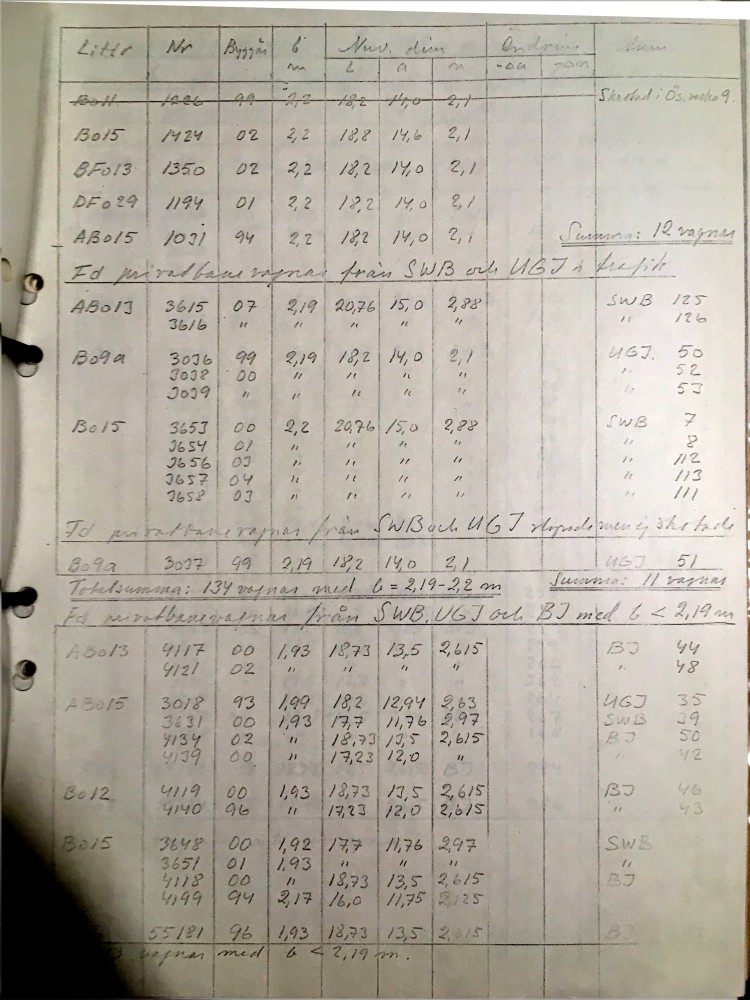 Littr Nr Byggår b Nuv. dim Ändring Anm
m l a m -on -on
Bo11 1226 99 2,2 18,2 14,0 2,1 Skrotad i Ös. vecka 9.
Bo15 1424 02 2,2 18,8 14,6 2,1
BFo13 1350 02 2,2 18,2 14,0 2,1
DFo29 1194 01 2,2 18,2 14,0 2,1
ABo15 1031 94 2,2 18,2 14,0 2,1 Summa: 12 vagnar
Fd privatbanevagnar från SWB och UGJ i trafik
ABo13 3615 07 2,19 20,76 15,0 2,88 SWB 125
3616 " " " " " " 126
Bo9a 3036 99 2,19 18,2 14,0 2,1 UGJ. 50
3038 00 " " " " " 52
3039 " " " " " " 53
Bo15 3653 00 2,2 20,76 15,0 2,88 SWB 7
3654 01 " " " " " 8
3656 03 " " " " " 112
3657 04 " " " " " 113
3658 03 " " " " " 111
Fd privatbanevagnar från SWB och UGJ slopade men ej skrotade
Bo9a 3037 99 2,19 18,2 14,0 2,1 UGJ 51
Totalsumma: 134 vagnar med b = 2,19-2,2 m Summa: 11 vagnar
Fd privatbanevagnar från SWB, UGJ och BJ med b < 2,19 m
ABo13 4117 00 1,93 18,73 13,5 2,615 BJ 44
4121 02 " " " " " 48
ABo15 3018 93 1,99 18,2 12,94 2,63 UGJ 35
3631 00 1,93 17,7 11,76 2,97 SWB 39
4134 02 " 18,73 13,5 2,615 BJ 50
4139 00 " 17,23 12,0 " " 42
Bo12 4119 00 1,93 18,73 13,5 2,615 BJ 46
4140 96 " 17,23 12,0 2,615 " 43
Bo15 3648 00 1,92 17,7 11,76 2,97 SWB
3651 01 1,93 " " " "
4118 00 " 18,73 13,5 2,615 BJ
4199 94 2,17 16,0 11,75 2,125
55181 96 1,93 18,73 13,5 2,615 BJ
vagnar med b < 2,19 m.